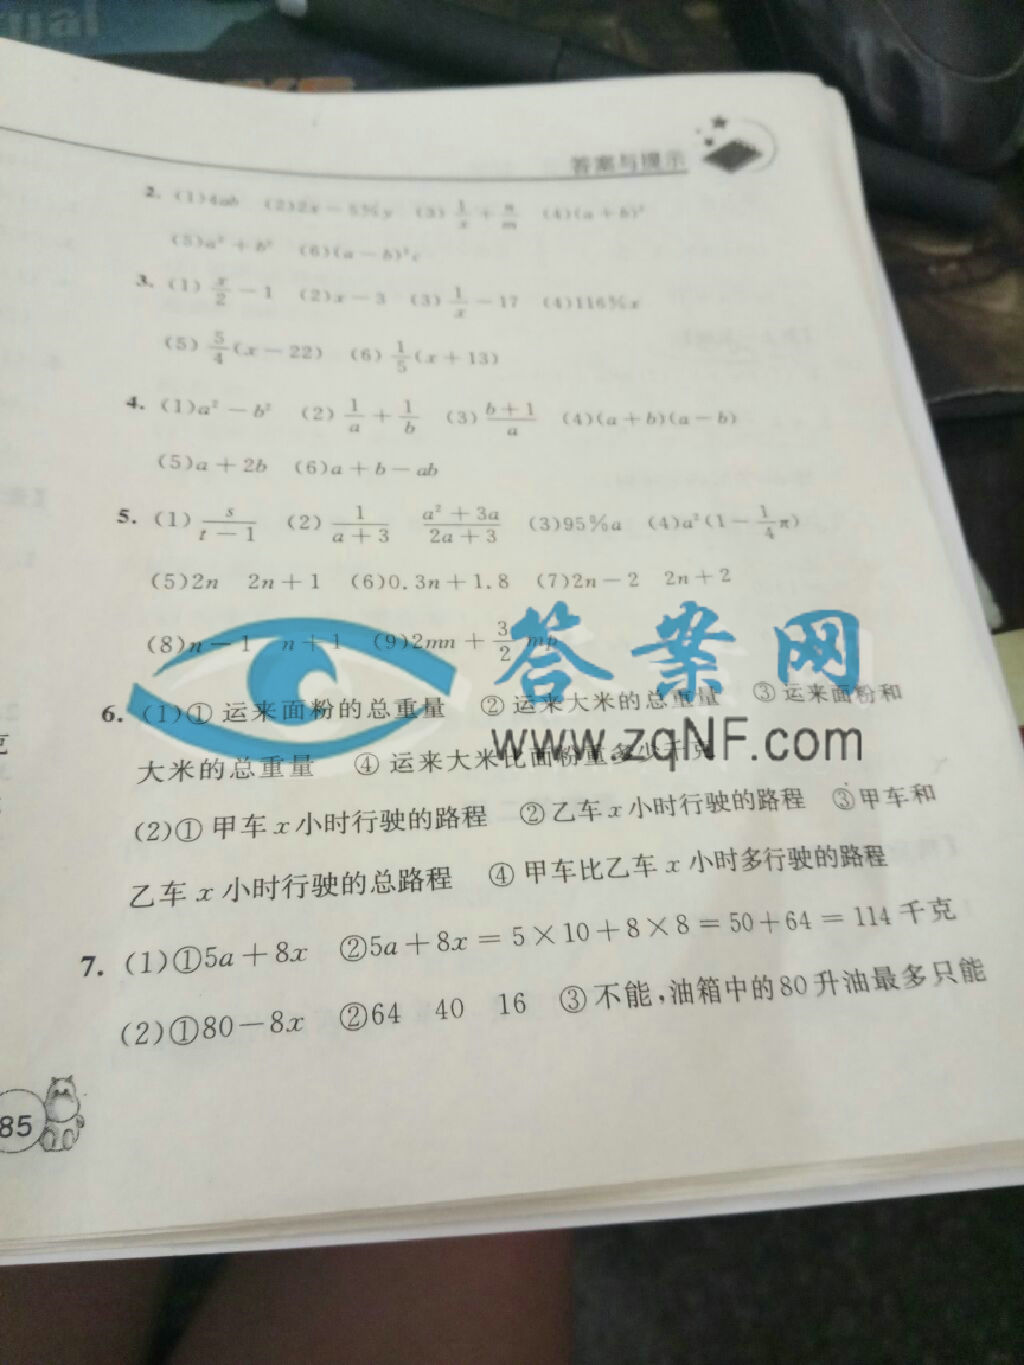 答案与提示
2. (1)4ab (2)2x－5%y (3) 1/x + n/m (4)(a+b)²
(5)a²+b² (6)(a－b)²c
3. (1) x/2 －1 (2)x－3 (3) 1/x －17 (4)116%x
(5) 5/4 (x－22) (6) 1/5 (x+13)
4. (1)a²－b² (2) 1/a + 1/b (3) (b+1)/a (4)(a+b)(a－b)
(5)a+2b (6)a+b－ab
5. (1) s/(t－1) (2) 1/(a+3) (a²+3a)/(2a+3) (3)95%a (4)a²(1－ 1/4 π)
(5)2n 2n+1 (6)0.3n+1.8 (7)2n－2 2n+2
(8)n－1 n+1 (9)2mn+ 3/2 mp
答案网
6. (1)① 运来面粉的总重量 ② 运来大米的总重量 ③ 运来面粉和
www.zqNF.com
大米的总重量 ④ 运来大米比面粉重多少千克
(2)① 甲车 x 小时行驶的路程 ② 乙车 x 小时行驶的路程 ③ 甲车和
乙车 x 小时行驶的总路程 ④ 甲车比乙车 x 小时多行驶的路程
7. (1)①5a+8x ②5a+8x=5×10+8×8=50+64=114 千克
(2)①80－8x ②64 40 16 ③ 不能，油箱中的80升油最多只能
85